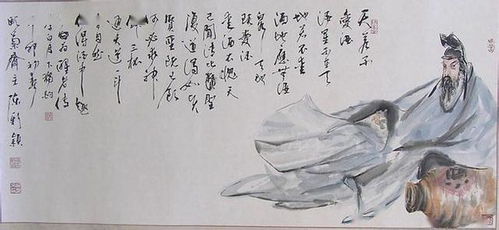 天若不
愛酒
酒星不在天
地若不愛
酒地應無酒
泉天地
既愛酒
愛酒不愧天
已聞清比聖
復道濁如賢
賢聖既已飲
何必求神
仙三杯
通大道一斗
合自然
得酒中趣
勿為醒者傳
李白月下獨酌
齋主陳